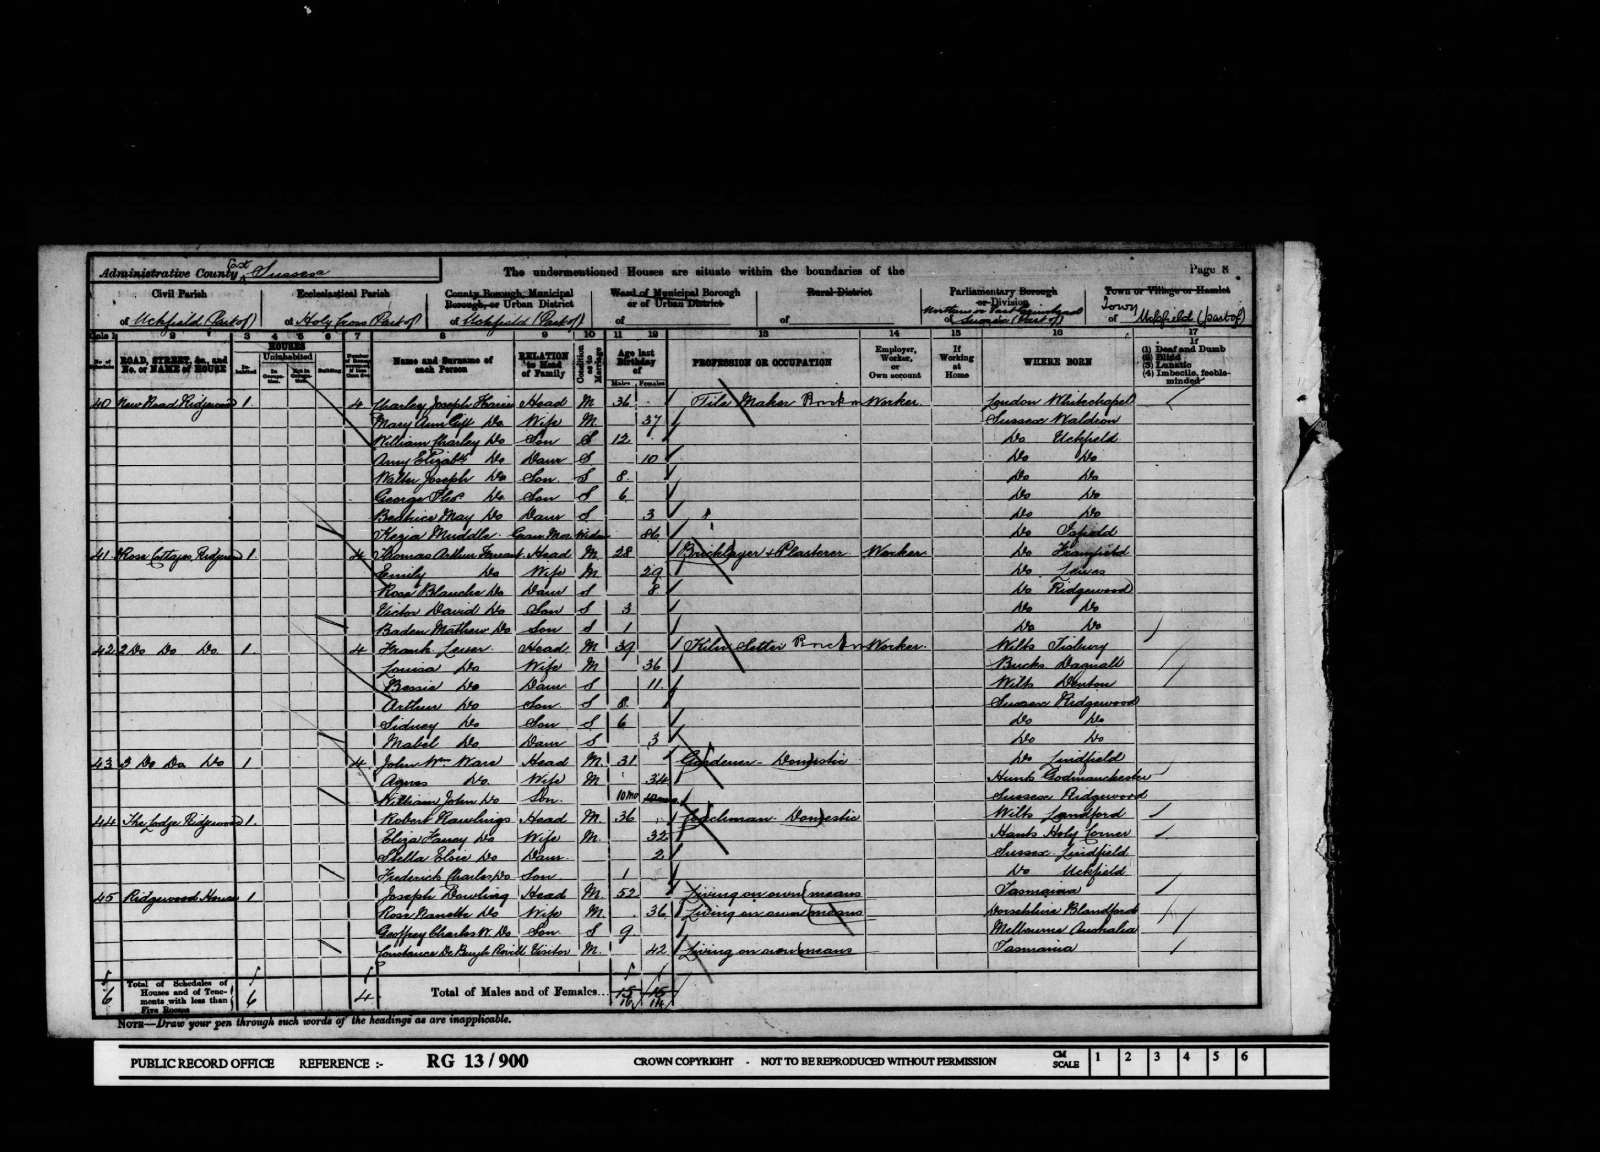 Administrative County East Sussex
The undermentioned Houses are situate within the boundaries of the
Page 8
Civil Parish
of Uckfield (Part of)
Ecclesiastical Parish
of Holy Cross (Part of)
County Borough, Municipal Borough, or Urban District
of Uckfield (Part of)
Ward of Municipal Borough or of Urban District
of
Rural District
of
Parliamentary Borough or Division
of Northern or East Grinstead Sussex (Part of)
Town or Village or Hamlet
of Uckfield (part of)
ROAD, STREET, &c., and No. or NAME of HOUSE
HOUSES
Uninhabited
Building
Name and Surname of each Person
RELATION to Head of Family
Condition as to Marriage
Age last Birthday of
Males Females
PROFESSION OR OCCUPATION
Employer, Worker, or Own account
If Working at Home
WHERE BORN
If (1) Deaf and Dumb (2) Blind (3) Lunatic (4) Imbecile, feeble-minded
40 New Road Ridgewood 1 4 Charles Joseph Head M 36 Tile Maker Worker London Whitechapel
Mary Ann Do Wife M 37 Sussex Waldron
William Charles Do Son S 12 Do Uckfield
Amy Elizabth Do Daur S 10 Do Do
Walter Joseph Do Son S 8 Do Do
George Thos Do Son S 6 Do Do
Beatrice May Do Daur S 3 Do Do
Kezia Muddle Widow 86 Do Isfield
41 1 Rose Cottages Ridgewood 1 4 Thomas Arthur Head M 28 Bricklayer & Plasterer Worker Do Framfield
Emily Do Wife M 29 Do Lewes
Rose Blanche Do Daur S 8 Do Ridgewood
Victor David Do Son S 3 Do Do
Baden Mathew Do Son S 1 Do Do
42 2 Do Do Do 1 4 Frank Head M 39 Kiln Setter Worker Wilts Tisbury
Louisa Do Wife M 36 Bucks Dagnall
Bessie Do Daur S 11 Wilts
Arthur Do Son S 8 Sussex Ridgewood
Sidney Do Son S 6 Do Do
Mabel Do Daur S 3 Do Do
43 3 Do Do Do 1 4 John Wm Ware Head M 31 Gardener - Domestic Do Lindfield
Agnes Do Wife M 34 Hunts Godmanchester
William John Do Son 10 mo Sussex Ridgewood
44 The Lodge Ridgewood 1 Robert Rawlings Head M 36 Coachman - Domestic Wilts Landford
Eliza Fanny Do Wife M 32 Hants Holy Corner
Stella Elsie Do Daur 2 Sussex Lindfield
Frederick Charles Do Son 1 Do Uckfield
45 Ridgewood House 1 Joseph Dowling Head M 52 Living on own means Tasmania
Rose Nanette Do Wife M 36 Living on own means Dorsetshire Blandford
Geoffrey Charles W. Do Son S 9 Melbourne Australia
Constance De Burgh Visitor M 42 Living on own means Tasmania
6 Total of Schedules of Houses and of Tenements with less than Five Rooms 6 4 Total of Males and of Females... 15 15
16 14
NOTE—Draw your pen through such words of the headings as are inapplicable.
PUBLIC RECORD OFFICE REFERENCE :- RG 13 / 900 CROWN COPYRIGHT - NOT TO BE REPRODUCED WITHOUT PERMISSION CM SCALE 1 2 3 4 5 6